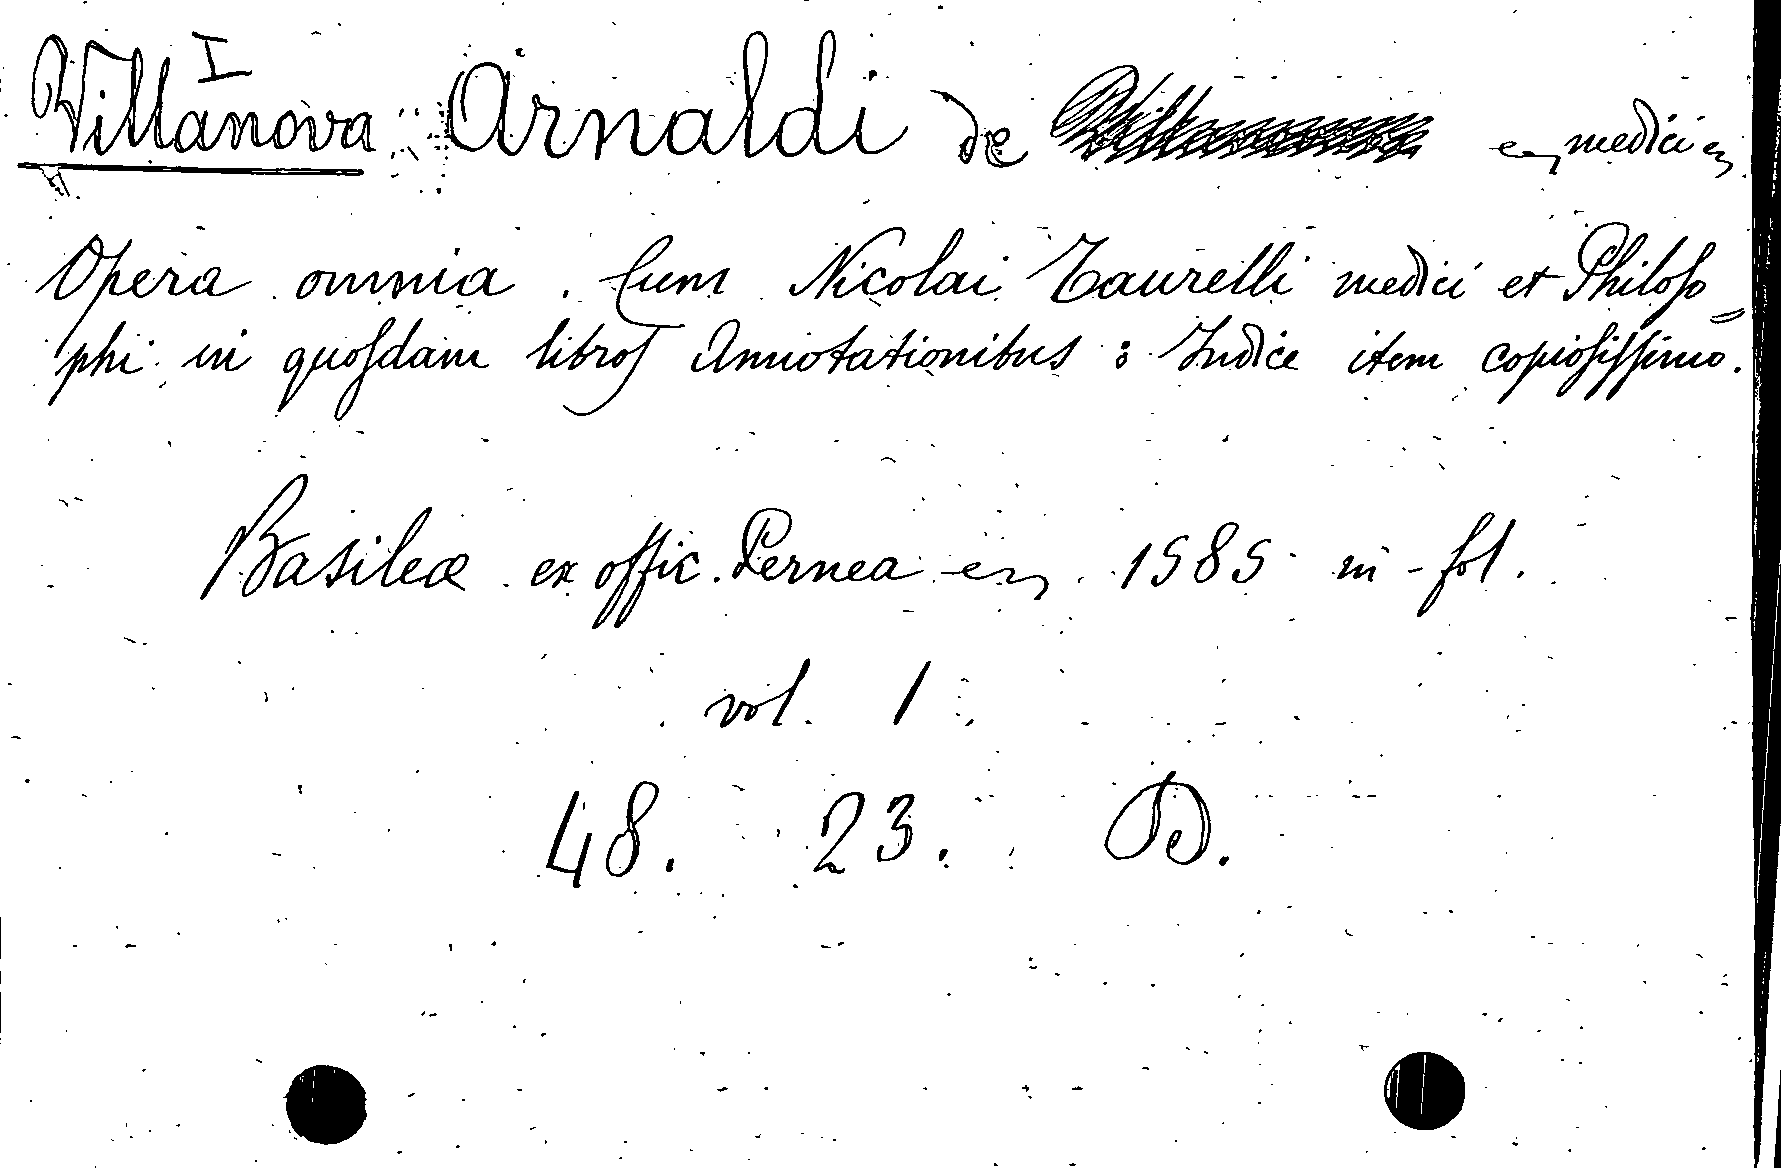 I
Villanova Arnaldi de medici
Opera omnia. Cum Nicolai Taurelli medici et Philoso=
phi in quosdam libros Annotationibus : Indice item copiosissimo.
Basileæ ex offic. Pernea 1585 in-fol.
vol. 1
48. 23. D.